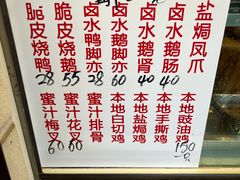 脆皮烧鸭
28
脆皮烧鹅
55
卤水鸭脚亦
28
卤水鹅脚亦
60
卤水鹅肾
40
卤水鹅肠
40
盐焗凤爪
蜜汁梅叉
60
蜜汁花叉
60
蜜汁排骨
本地白切鸡
本地盐焗鸡
本地手撕鸡
本地豉油鸡
150
一只